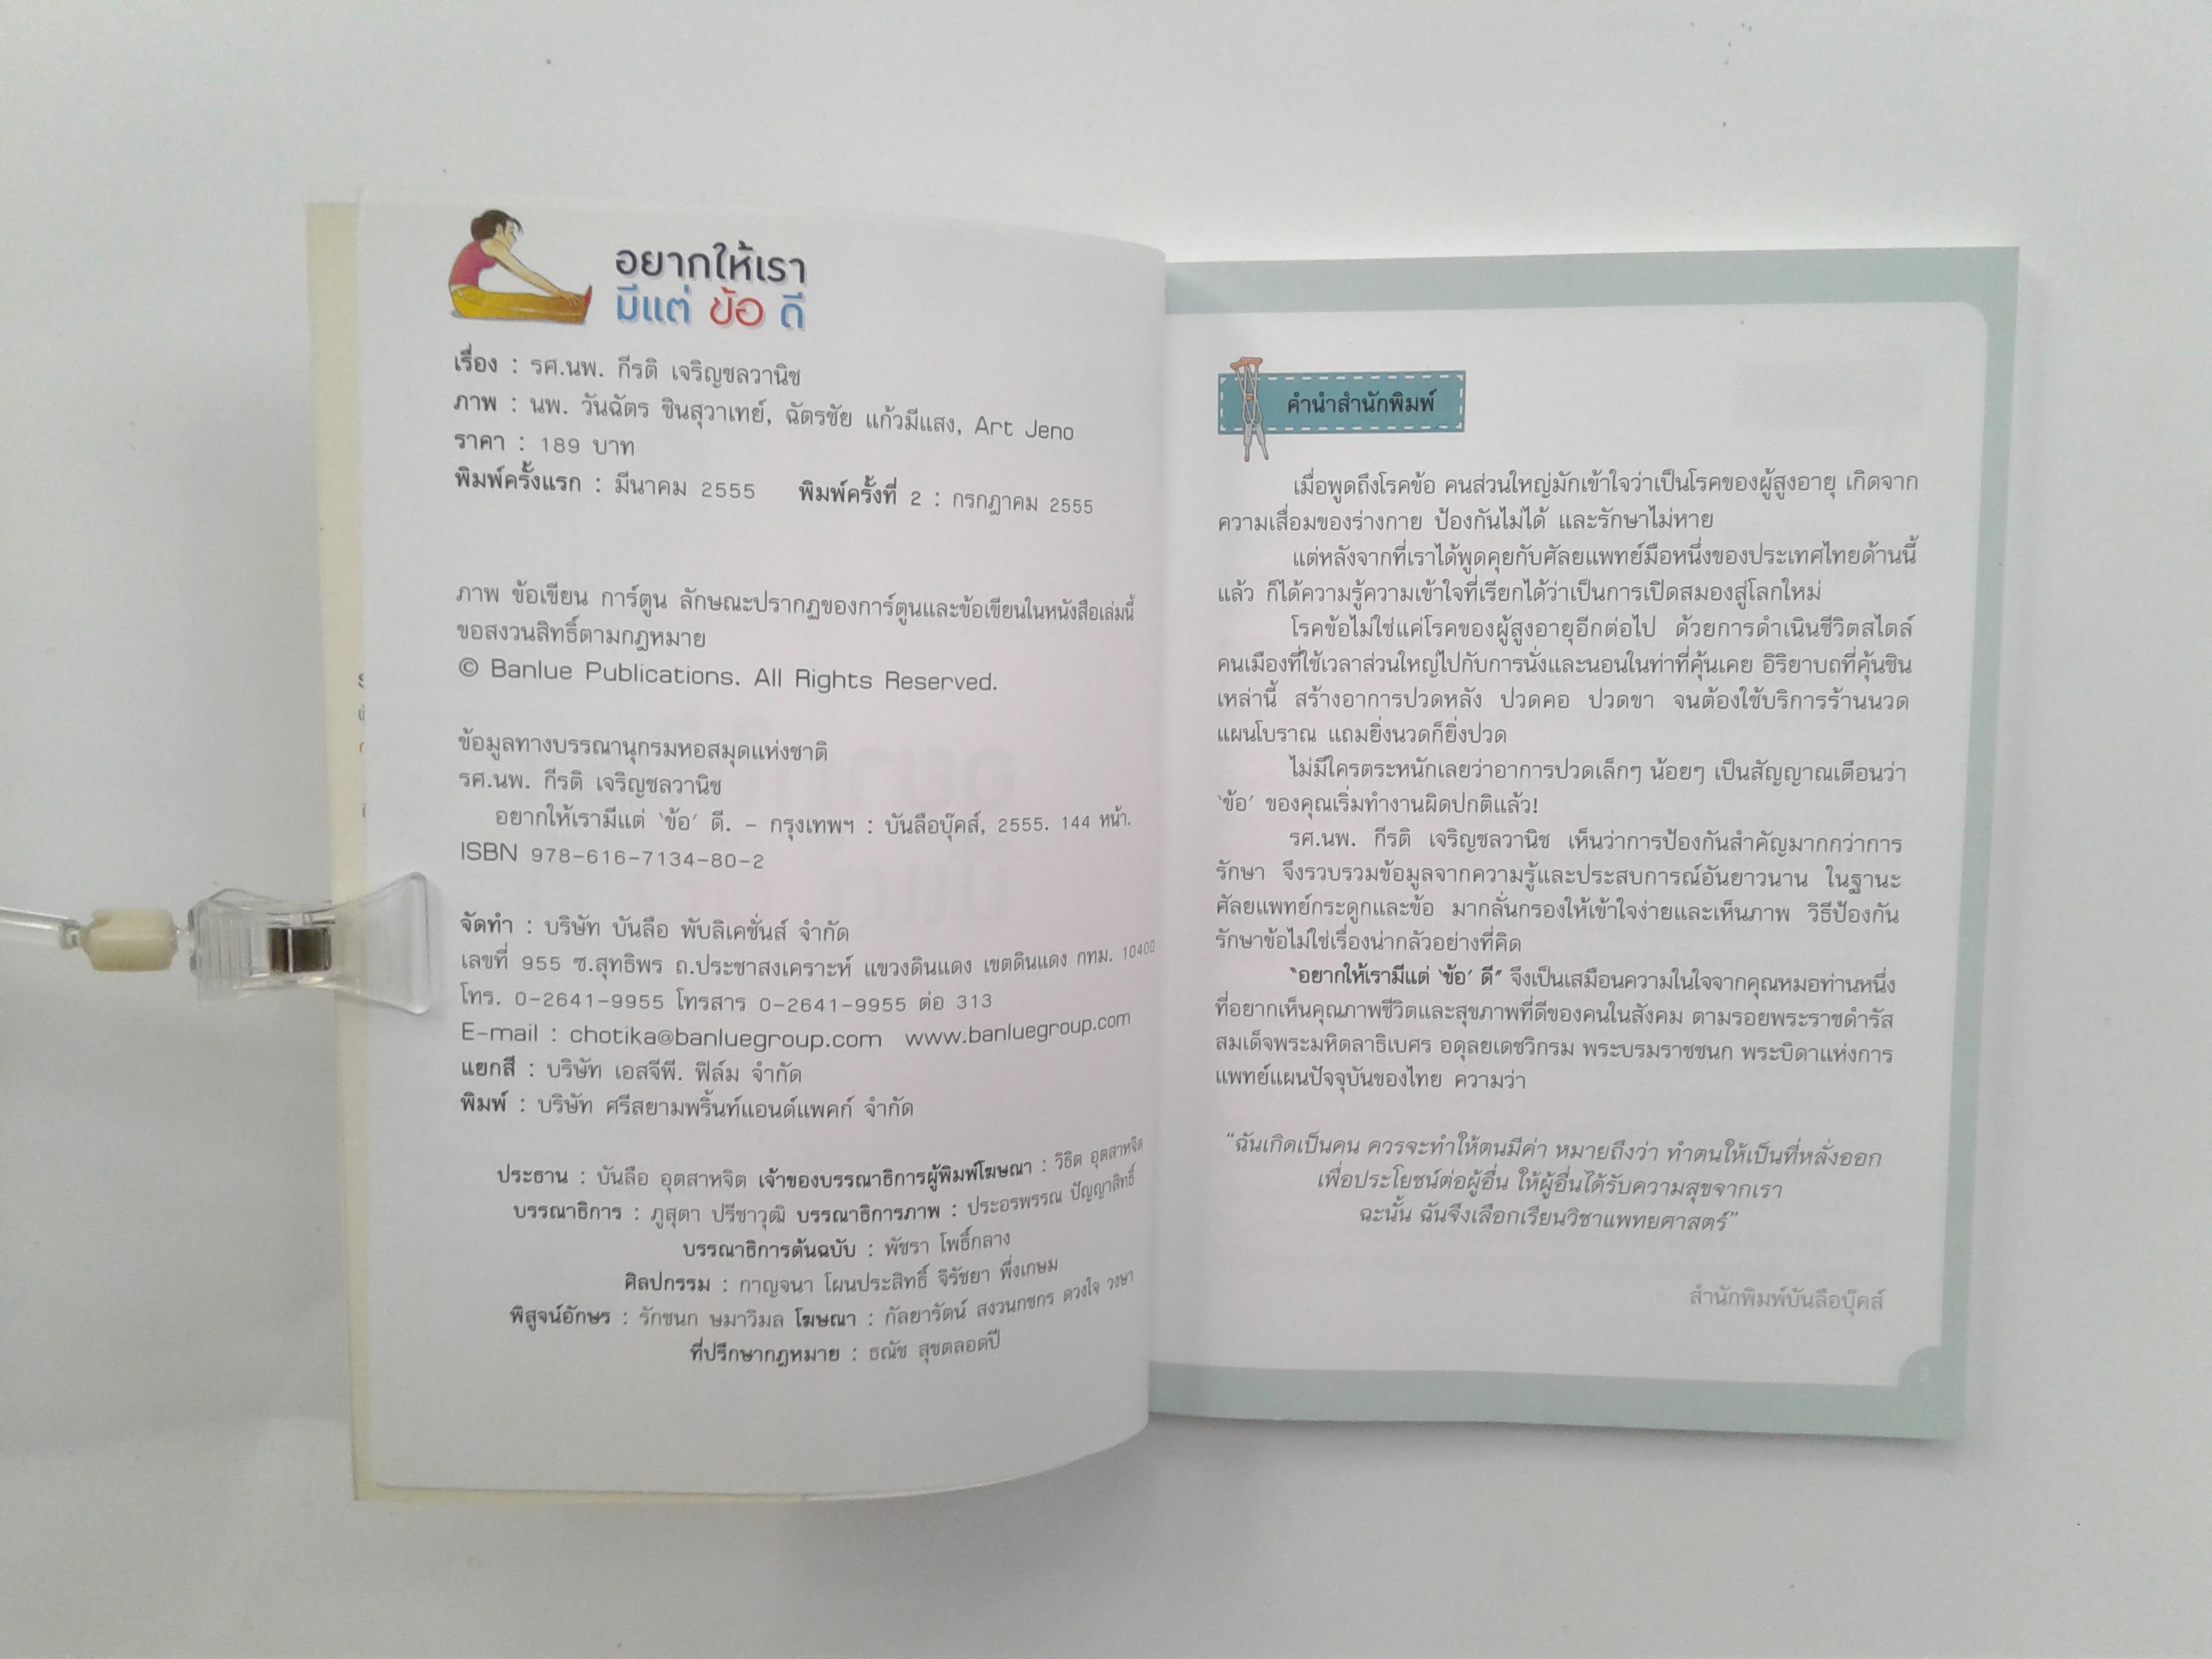 อยากให้เรา
มีแต่ ข้อ ดี
เรื่อง : รศ.นพ. กีรติ เจริญชลวานิช
ภาพ : นพ. วันฉัตร ชินสุวาเทย์, ฉัตรชัย แก้วมีแสง, Art Jeno
ราคา : 189 บาท
พิมพ์ครั้งแรก : มีนาคม 2555 พิมพ์ครั้งที่ 2 : กรกฎาคม 2555
ภาพ ข้อเขียน การ์ตูน ลักษณะปรากฏของการ์ตูนและข้อเขียนในหนังสือเล่มนี้
ขอสงวนสิทธิ์ตามกฎหมาย
© Banlue Publications. All Rights Reserved.
ข้อมูลทางบรรณานุกรมหอสมุดแห่งชาติ
รศ.นพ. กีรติ เจริญชลวานิช
อยากให้เรามีแต่ 'ข้อ' ดี. – กรุงเทพฯ : บันลือบุ๊คส์, 2555. 144 หน้า.
ISBN 978-616-7134-80-2
จัดทำ : บริษัท บันลือ พับลิเคชั่นส์ จำกัด
เลขที่ 955 ซ.สุทธิพร ถ.ประชาสงเคราะห์ แขวงดินแดง เขตดินแดง กทม. 10400
โทร. 0-2641-9955 โทรสาร 0-2641-9955 ต่อ 313
E-mail : chotika@banluegroup.com www.banluegroup.com
แยกสี : บริษัท เอสจีพี. ฟิล์ม จำกัด
พิมพ์ : บริษัท ศรีสยามพริ้นท์แอนด์แพคก์ จำกัด
ประธาน : บันลือ อุตสาหจิต เจ้าของบรรณาธิการผู้พิมพ์โฆษณา : วิธิต อุตสาหจิต
บรรณาธิการ : ภูสุตา ปรีชาวุฒิ บรรณาธิการภาพ : ประอรพรรณ ปัญญาสิทธิ์
บรรณาธิการต้นฉบับ : พัชรา โพธิ์กลาง
ศิลปกรรม : กาญจนา โผนประสิทธิ์ จิรัชยา พึ่งเกษม
พิสูจน์อักษร : รักชนก ษมาวิมล โฆษณา : กัลยารัตน์ สงวนกชกร ดวงใจ วงษา
ที่ปรึกษากฎหมาย : ธณัช สุขตลอดปี
คำนำสำนักพิมพ์
เมื่อพูดถึงโรคข้อ คนส่วนใหญ่มักเข้าใจว่าเป็นโรคของผู้สูงอายุ เกิดจาก
ความเสื่อมของร่างกาย ป้องกันไม่ได้ และรักษาไม่หาย
แต่หลังจากที่เราได้พูดคุยกับศัลยแพทย์มือหนึ่งของประเทศไทยด้านนี้
แล้ว ก็ได้ความรู้ความเข้าใจที่เรียกได้ว่าเป็นการเปิดสมองสู่โลกใหม่
โรคข้อไม่ใช่แค่โรคของผู้สูงอายุอีกต่อไป ด้วยการดำเนินชีวิตสไตล์
คนเมืองที่ใช้เวลาส่วนใหญ่ไปกับการนั่งและนอนในท่าที่คุ้นเคย อิริยาบถที่คุ้นชิน
เหล่านี้ สร้างอาการปวดหลัง ปวดคอ ปวดขา จนต้องใช้บริการร้านนวด
แผนโบราณ แถมยิ่งนวดก็ยิ่งปวด
ไม่มีใครตระหนักเลยว่าอาการปวดเล็กๆ น้อยๆ เป็นสัญญาณเตือนว่า
'ข้อ' ของคุณเริ่มทำงานผิดปกติแล้ว!
รศ.นพ. กีรติ เจริญชลวานิช เห็นว่าการป้องกันสำคัญมากกว่าการ
รักษา จึงรวบรวมข้อมูลจากความรู้และประสบการณ์อันยาวนาน ในฐานะ
ศัลยแพทย์กระดูกและข้อ มากลั่นกรองให้เข้าใจง่ายและเห็นภาพ วิธีป้องกัน
รักษาข้อไม่ใช่เรื่องน่ากลัวอย่างที่คิด
"อยากให้เรามีแต่ 'ข้อ' ดี" จึงเป็นเสมือนความในใจจากคุณหมอท่านหนึ่ง
ที่อยากเห็นคุณภาพชีวิตและสุขภาพที่ดีของคนในสังคม ตามรอยพระราชดำรัส
สมเด็จพระมหิตลาธิเบศร อดุลยเดชวิกรม พระบรมราชชนก พระบิดาแห่งการ
แพทย์แผนปัจจุบันของไทย ความว่า
"ฉันเกิดเป็นคน ควรจะทำให้ตนมีค่า หมายถึงว่า ทำตนให้เป็นที่หลั่งออก
เพื่อประโยชน์ต่อผู้อื่น ให้ผู้อื่นได้รับความสุขจากเรา
ฉะนั้น ฉันจึงเลือกเรียนวิชาแพทยศาสตร์"
สำนักพิมพ์บันลือบุ๊คส์